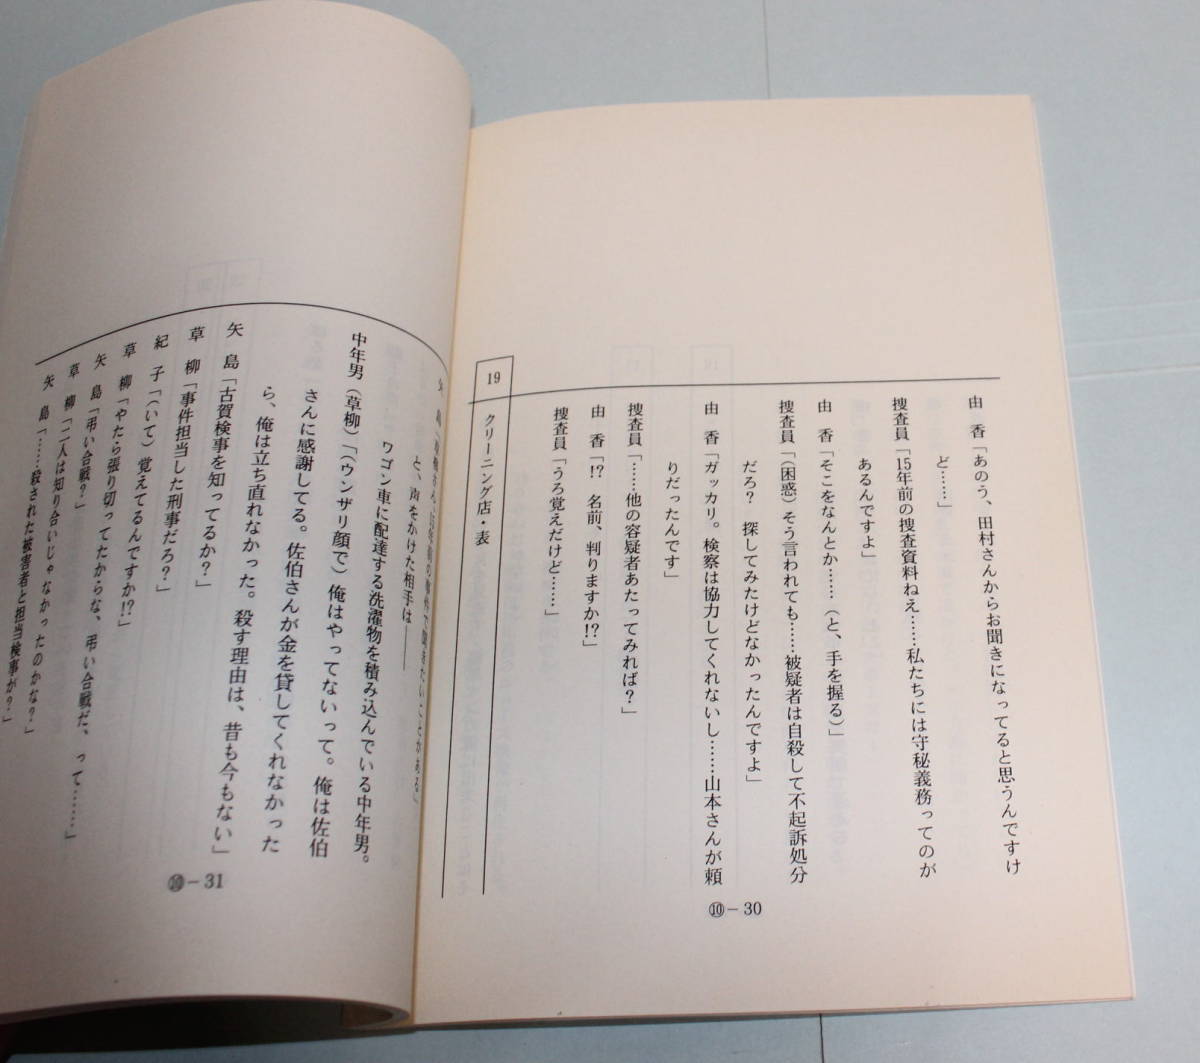 由　香「あのう、田村さんからお聞きになってると思うんですけ
ど……」
捜査員「15年前の捜査資料ねえ……私たちには守秘義務ってのが
あるんですよ」
由　香「そこをなんとか……（と、手を握る）」
捜査員「（困惑）そう言われても……被疑者は自殺して不起訴処分
だろ？　探してみたけどなかったんですよ」
由　香「ガッカリ。検察は協力してくれないし……山本さんが頼
りだったんです」
捜査員「……他の容疑者あたってみれば？」
由　香「!?　名前、判りますか!?」
捜査員「うろ覚えだけど……」
19　クリーニング店・表
⑩－30
で聞きたいことがある」
と、声をかけた相手は――
ワゴン車に配達する洗濯物を積み込んでいる中年男。
中年男（草柳）「（ウンザリ顔で）俺はやってないって。俺は佐伯
さんに感謝してる。佐伯さんが金を貸してくれなかった
ら、俺は立ち直れなかった。殺す理由は、昔も今もない」
矢　島「古賀検事を知ってるか？」
草　柳「事件担当した刑事だろ？」
紀　子「（いて）覚えてるんですか!?」
草　柳「やたら張り切ってたからな、弔い合戦だ、って……」
矢　島「弔い合戦？」
草　柳「二人は知り合いじゃなかったのかな？」
矢　島「……殺された被害者と担当検事が？」
⑩－31